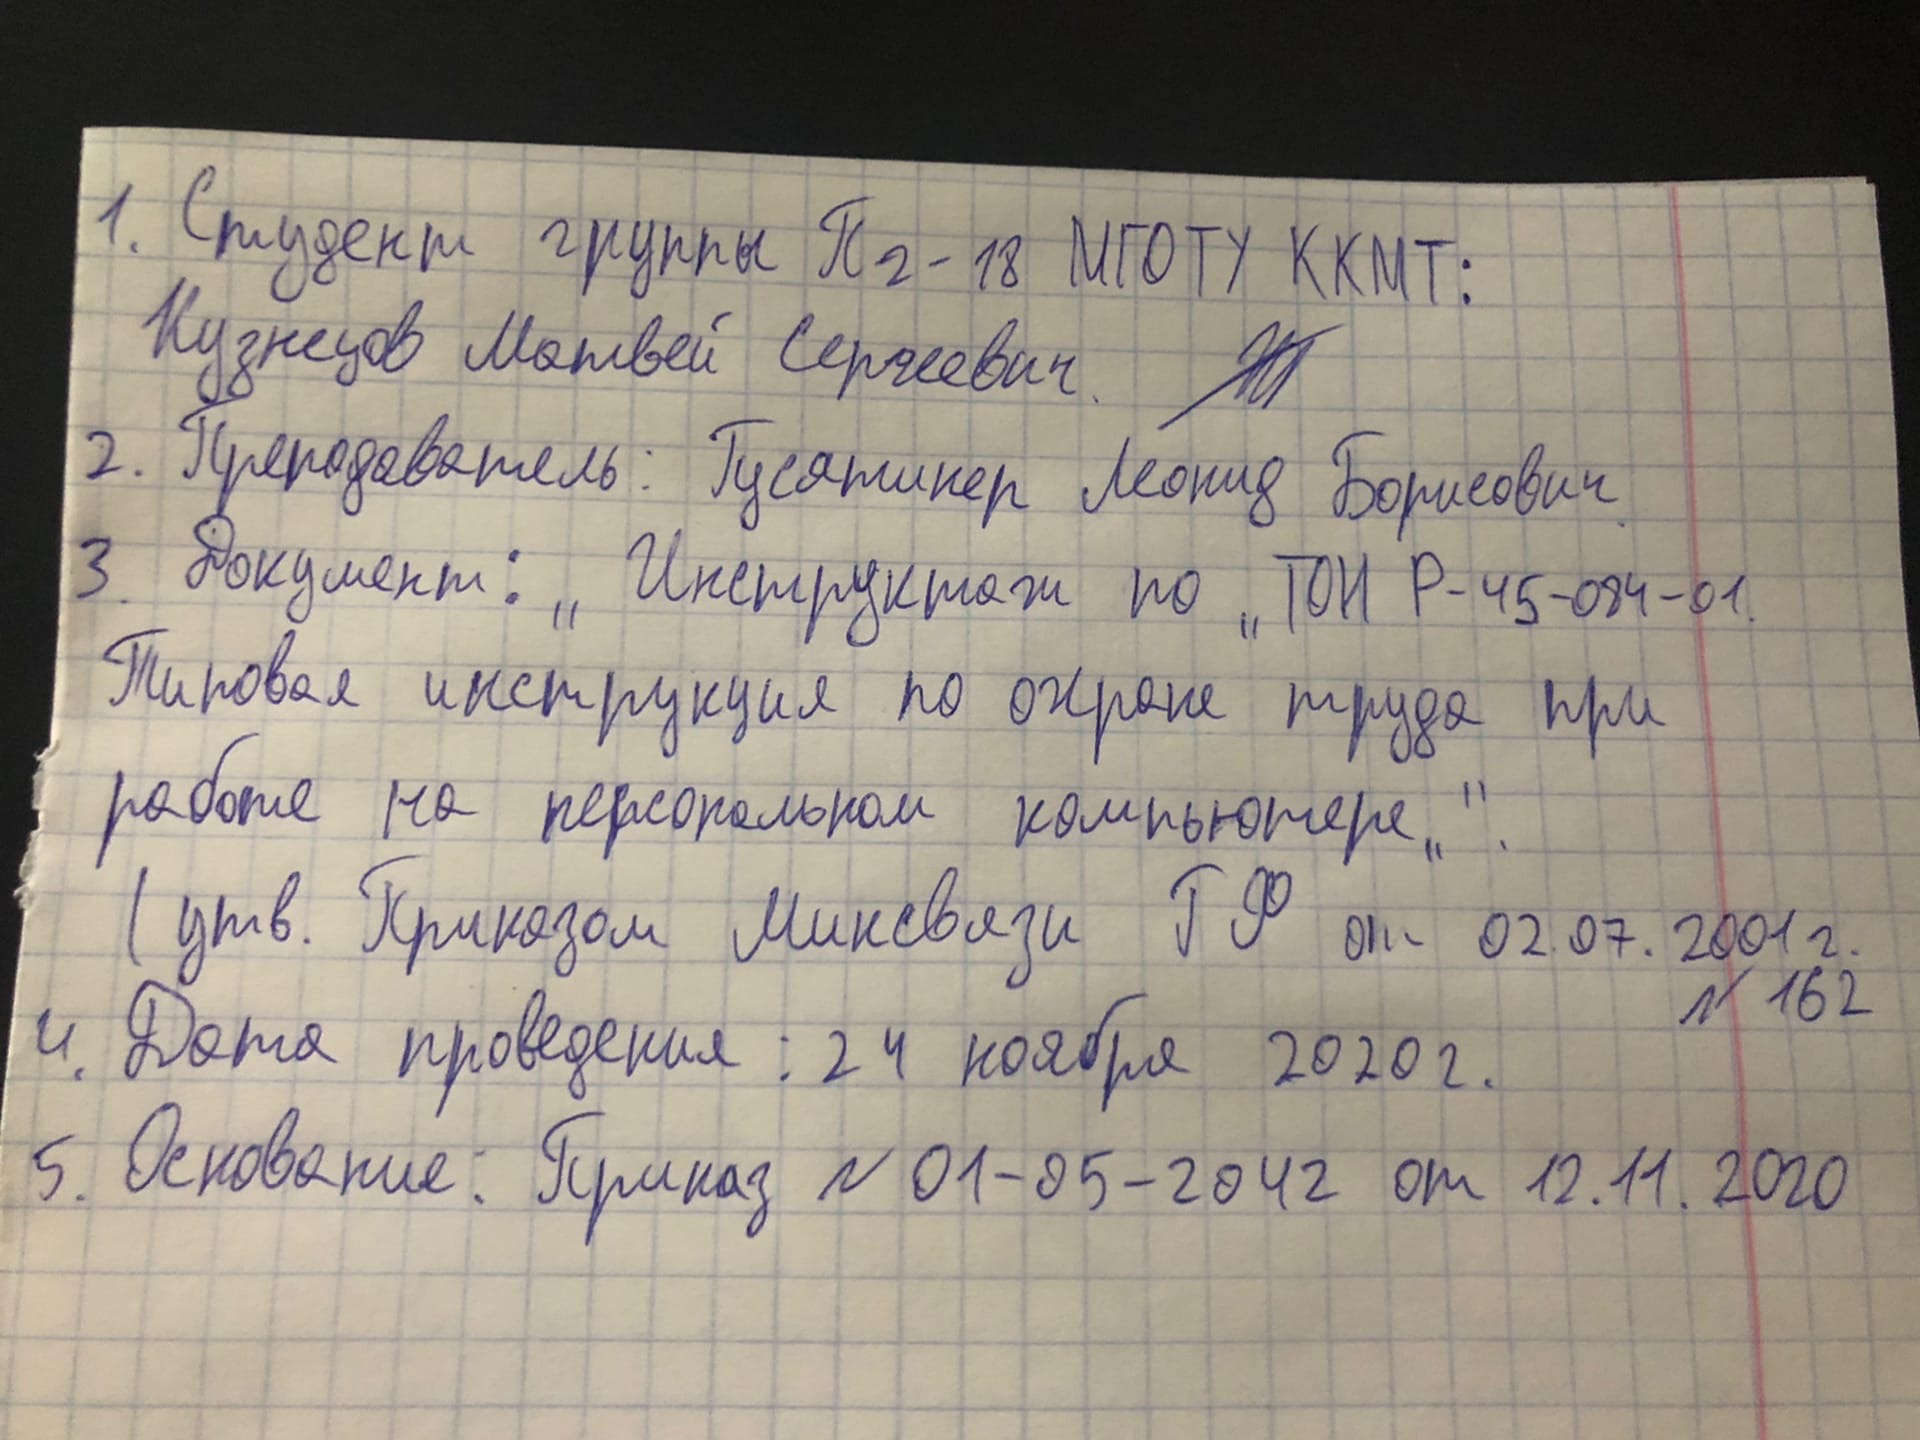 1. Студент группы П2-18 МГОТУ ККМТ:
Кузнецов Матвей Сергеевич.
2. Преподаватель: Гусятинер Леонид Борисович.
3. Документ: „Инструктаж по „ТОИ Р-45-084-01.
Типовая инструкция по охране труда при
работе на персональном компьютере„".
(утв. Приказом Минсвязи РФ от 02.07.2001г.
№ 162
4. Дата проведения: 24 ноября 2020г.
5. Основание: Приказ № 01-05-2042 от 12.11.2020